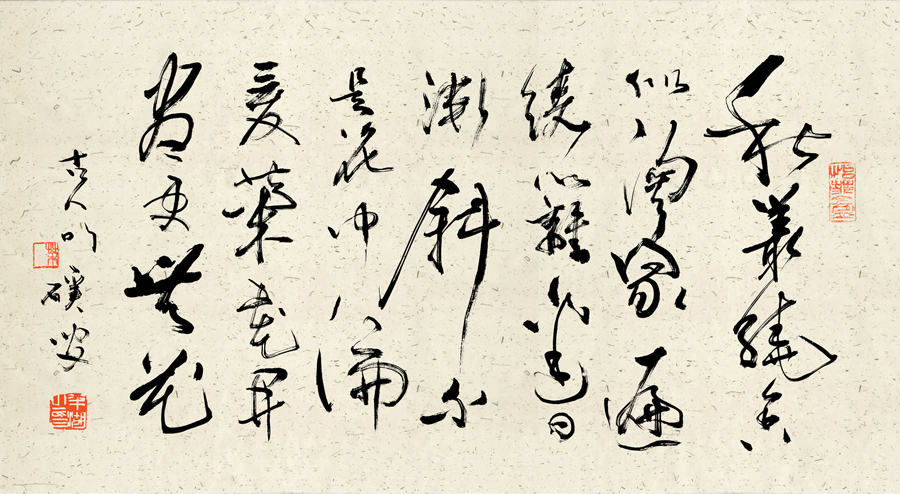 秋叢繞舍
似陶家遍
繞籬邊日
漸斜不
是花中偏
愛菊花開
盡更無花